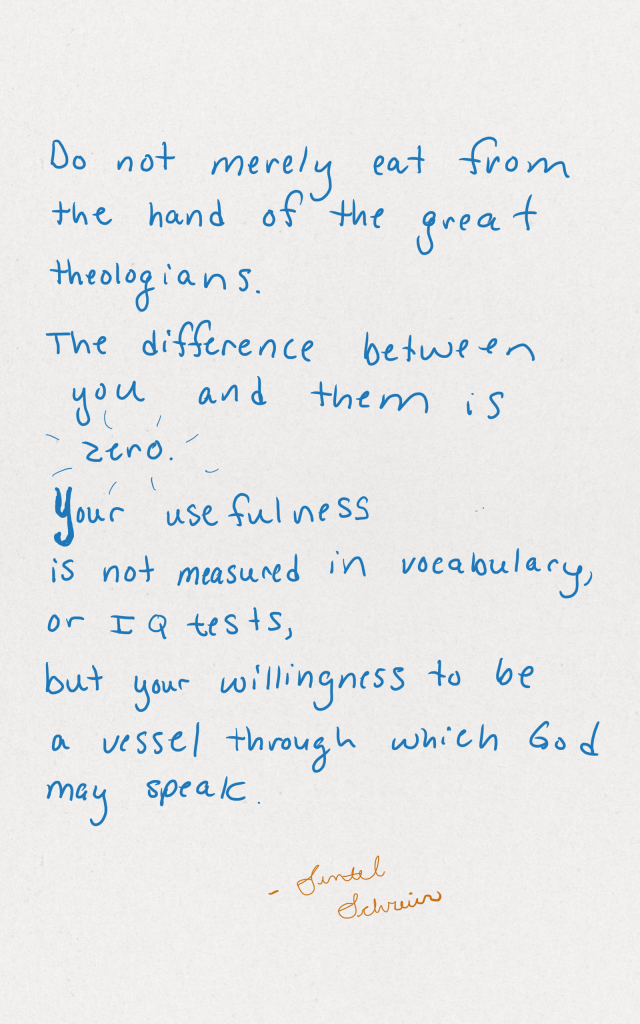 Do not merely eat from
the hand of the great
theologians.
The difference between
you and them is
zero.
Your usefulness
is not measured in vocabulary,
or IQ tests,
but your willingness to be
a vessel through which God
may speak.